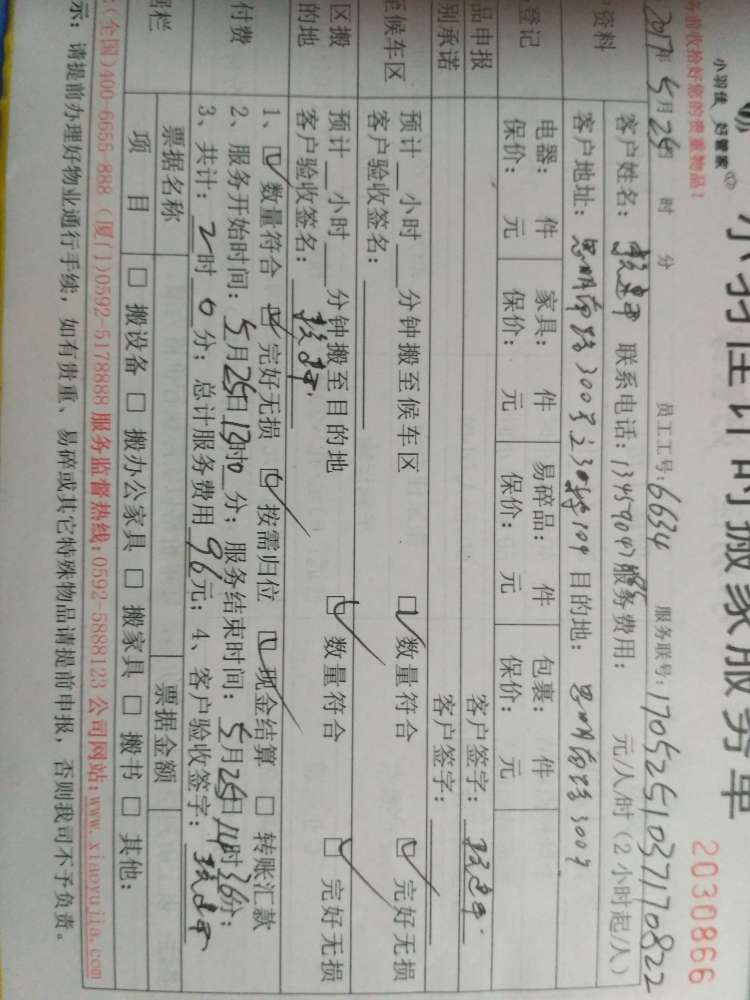 小羽佳 好管家
小羽佳计时搬家服务单
务前收拾好您的贵重物品！
2030866
2017年5月25日 时 分 员工工号：6634 服务联号：1705251037170822
资料
客户姓名： 联系电话：服务费用： 元/人/时（2小时起/人）
客户地址：思明南路300号 目的地：思明南路3009
登记
电器： 件 家具： 件 易碎品： 件 包裹： 件
保价： 元 保价： 元 保价： 元 保价： 元
品申报 客户签字：
别承诺 客户签字：
至候车区
预计__小时__分钟搬至候车区 □数量符合 □完好无损
客户验收签名：
区搬
的地
预计__小时__分钟搬至目的地 □数量符合 □完好无损
客户验收签名：
付费
1、□数量符合 □完好无损 □按需归位 □现金结算 □转账汇款
2、服务开始时间：5月25日 时 分；服务结束时间：5月25日14时36分；
3、共计：2时0分；总计服务费用96元；4、客户验收签字：
据栏
票据名称 票据金额
项 目 □搬设备 □搬办公家具 □搬家具 □搬书 □其他：
:(全国)400-6655-888 (厦门)0592-5178888 服务监督热线:0592-5888123 公司网站:www.xiaoyujia.com
示：请提前办理好物业通行手续，如有贵重、易碎或其它特殊物品请提前申报，否则我司不予负责。